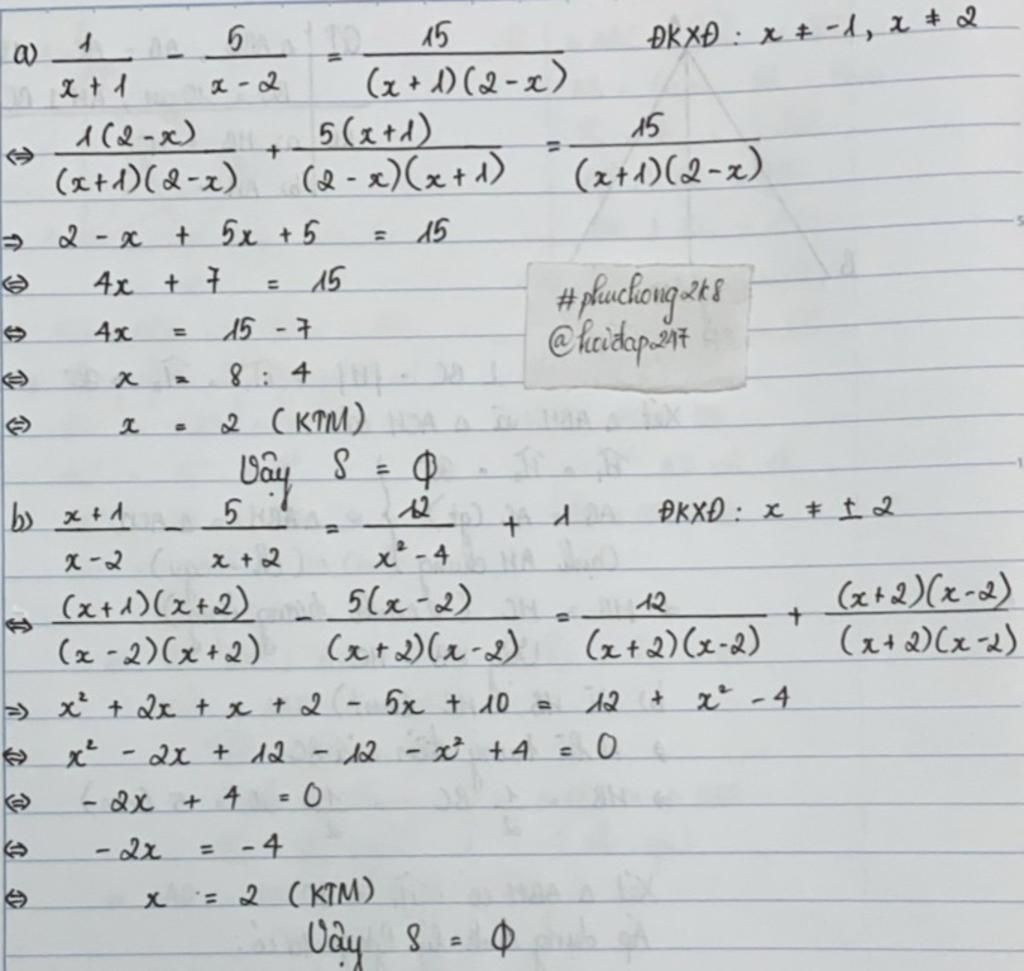 a) 1/(x+1) - 5/(x-2) = 15/((x+1)(2-x)) ĐKXĐ: x ≠ -1, x ≠ 2
⇔ 1(2-x)/((x+1)(2-x)) + 5(x+1)/((2-x)(x+1)) = 15/((x+1)(2-x))
⇒ 2 - x + 5x + 5 = 15
⇔ 4x + 7 = 15
⇔ 4x = 15 - 7
⇔ x = 8 : 4
⇔ x = 2 (KTM)
Vậy S = Φ
#phuchong2k8
@hoidap247
b) (x+1)/(x-2) - 5/(x+2) = 12/(x²-4) + 1 ĐKXĐ: x ≠ ± 2
⇔ (x+1)(x+2)/((x-2)(x+2)) - 5(x-2)/((x+2)(x-2)) = 12/((x+2)(x-2)) + (x+2)(x-2)/((x+2)(x-2))
⇒ x² + 2x + x + 2 - 5x + 10 = 12 + x² - 4
⇔ x² - 2x + 12 - 12 - x² + 4 = 0
⇔ -2x + 4 = 0
⇔ -2x = -4
⇔ x = 2 (KTM)
Vậy S = Φ